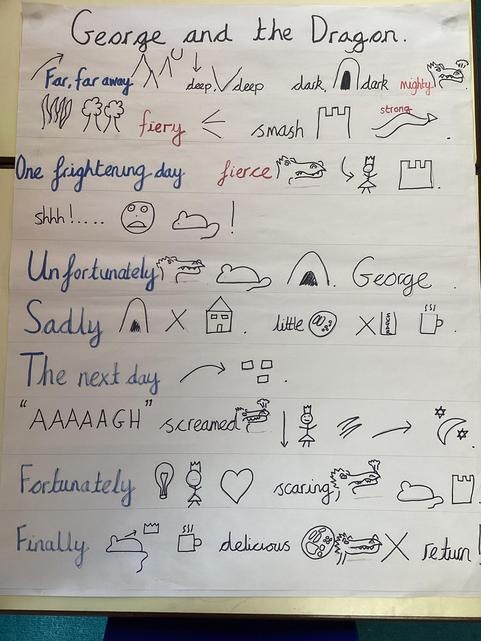 George and the Dragon.
Far, far away deep deep dark dark mighty
fiery smash strong .
One frightening day fierce .
shhh!.... !
Unfortunately George .
Sadly X . little X .
The next day .
"AAAAAGH" screamed .
Fortunately scaring .
Finally delicious X return!